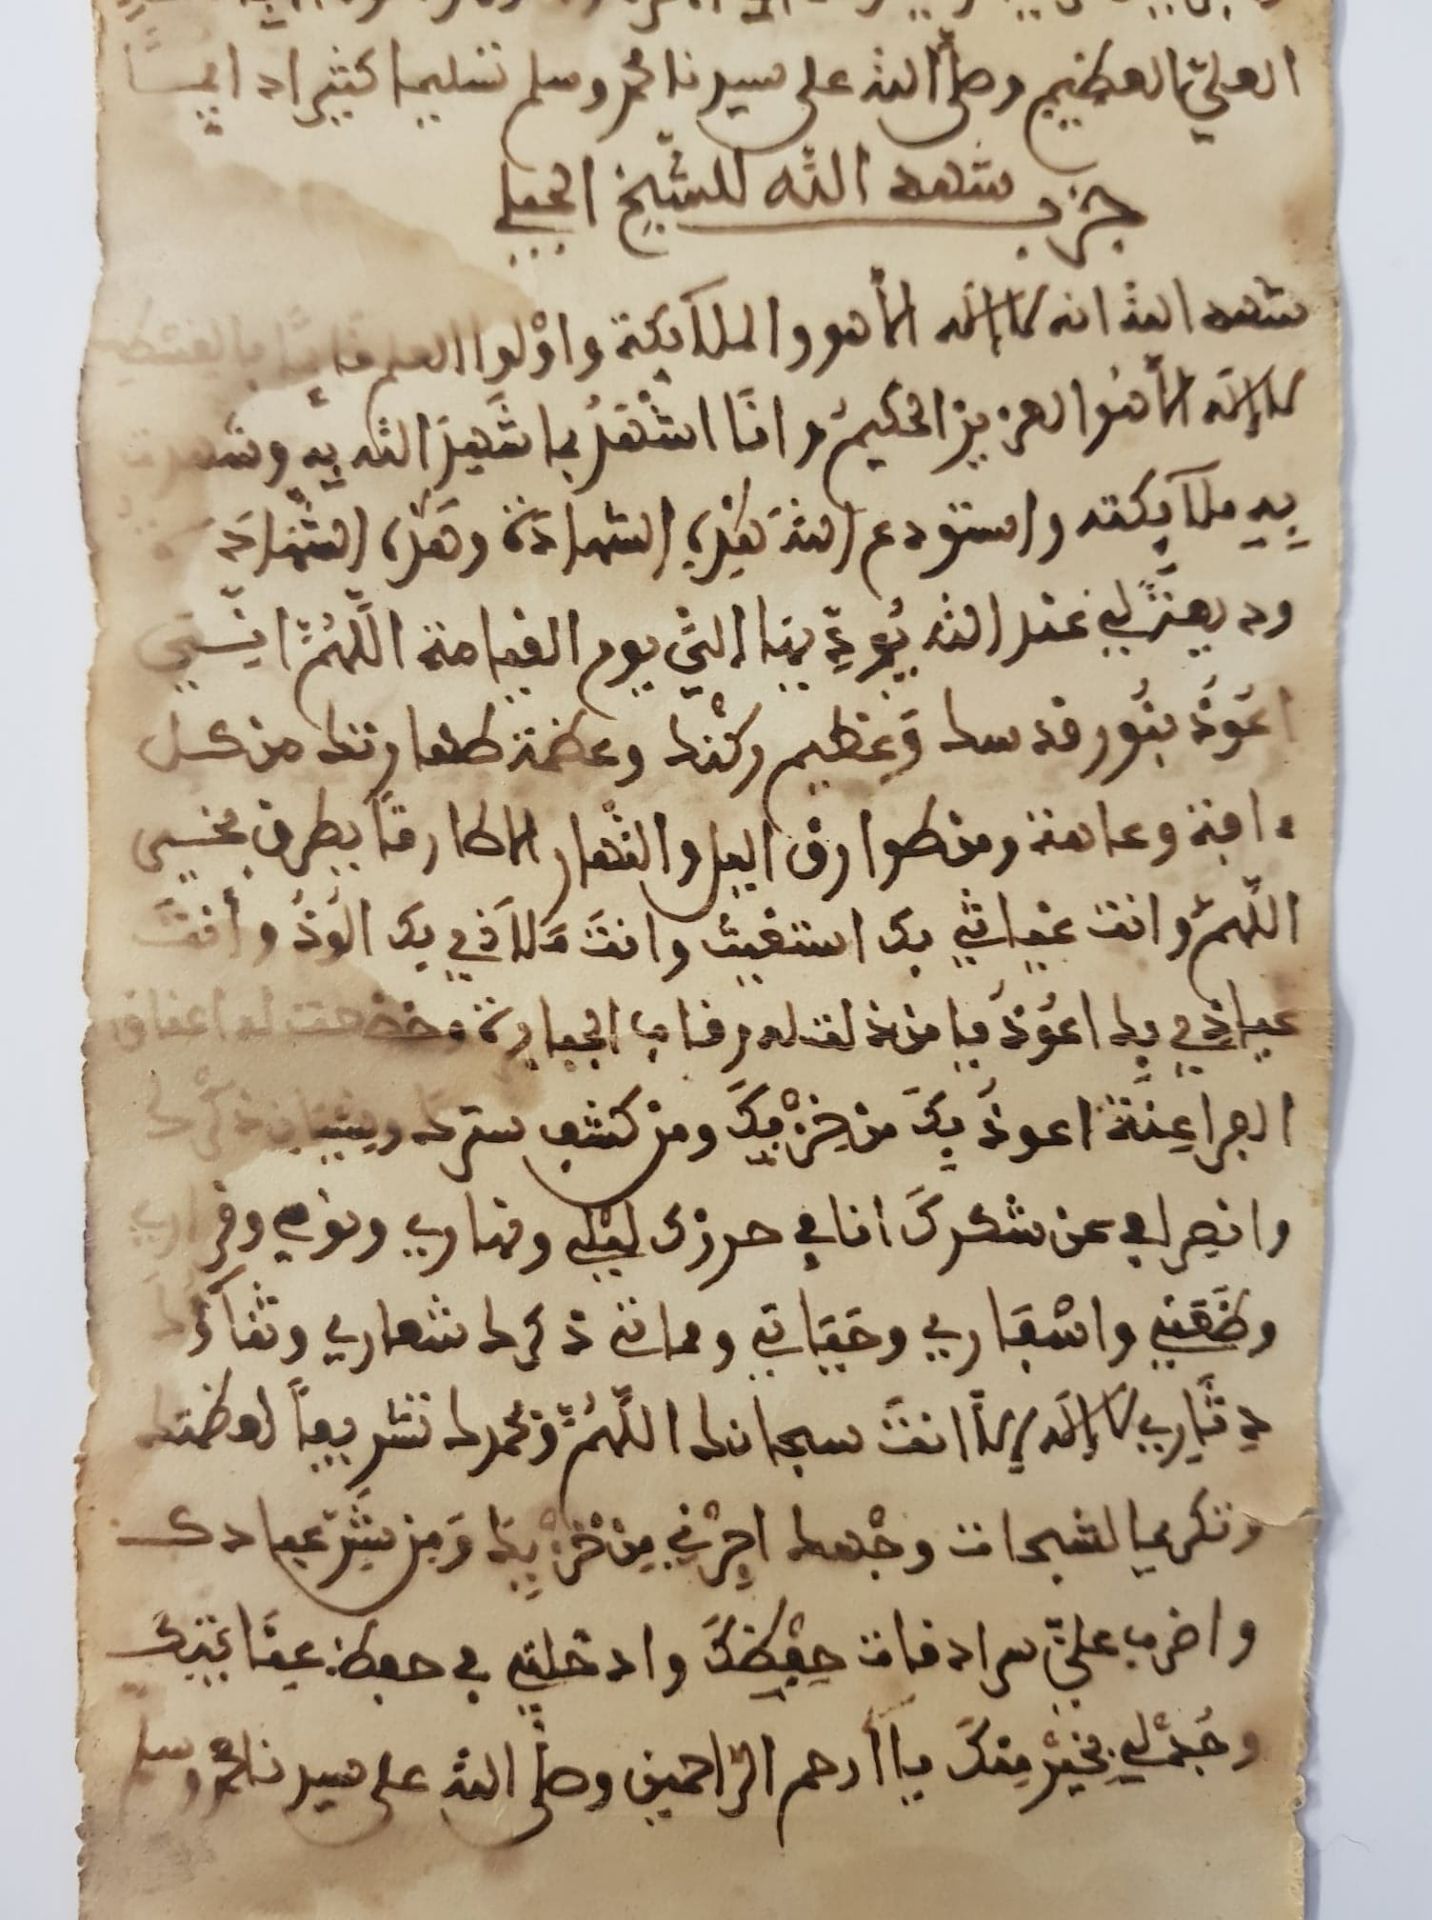 العلي العظيم وصلى الله على سيدنا محمد وسلم تسليما كثيرا دايما
حزب شهد الله للشيخ الجيلي
شهد الله انه لا إله الا هو والملآيكة واولوا العلم قايما بالقسط
لا إله الا هو العزيز الحكيم وانا اشهد بما شهد الله به وشهدت
به ملآيكته واستودع الله هذه الشهادة وهذه الشهادة
وديعة لي عند الله يؤديها الي يوم القيامة اللهم اني
اعوذ بنور قدسك وعظيم ركنك وعظمة طهارتك من كل
ءافة وعاهة ومن طوارق اليل والنهار الا طارقا يطرق بخير
اللهم انت غياثي بك استغيث وانت ملاذي بك الوذ وأنت
عياذي بك اعوذ يا من ذلت له رقاب الجبابرة وخضعت له اعناق
الفراعنة اعوذ بك من خزيك ومن كشف سترك ونسيان ذكرك
وانصرافي عن شكرك انا في حرزك ليلي ونهاري ونومي وقراري
وظعني واسفاري وحياتي ومماتي ذكرك شعاري وثناؤك
دثاري لا إله إلا انت سبحانك اللهم وبحمدك تشريفا لعظمتك
وتكريما لسبحات وجهك اجرني من خزيك ومن شر عبادك
واضرب علي سرادقات حفظك وادخلني في حفظ عنايتك
وجد لي بخير منك يا أرحم الراحمين وصلى الله على سيدنا محمد وسلم